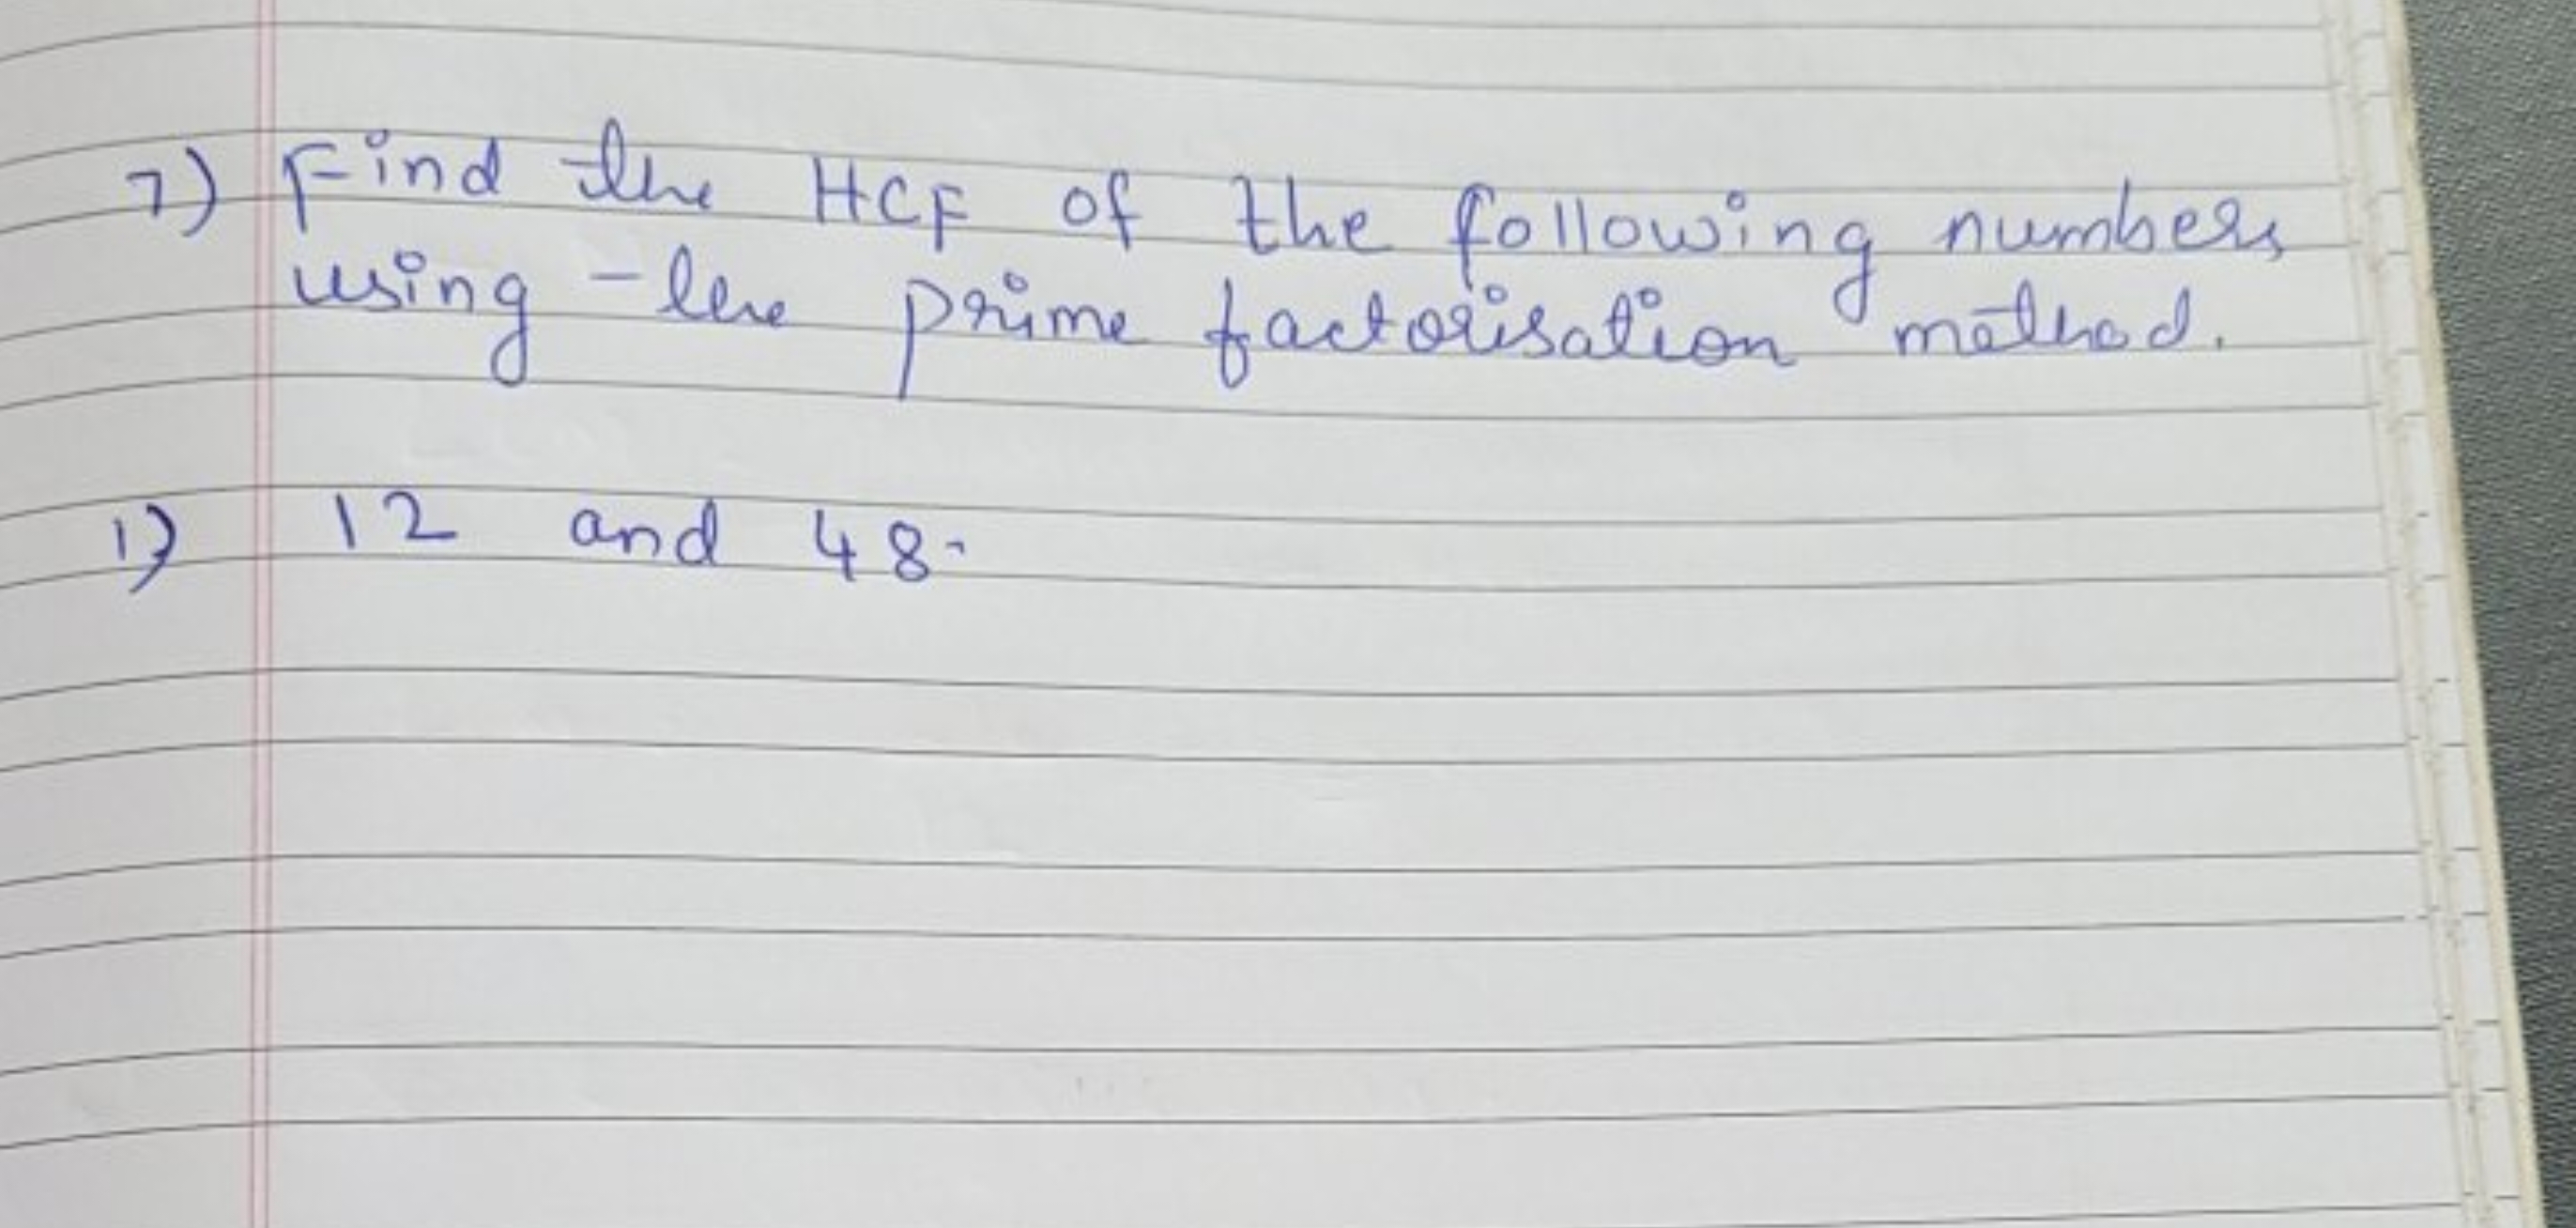 7) Find the HCF of the following numbers
using the prime factorisation method.
1) 12 and 48.